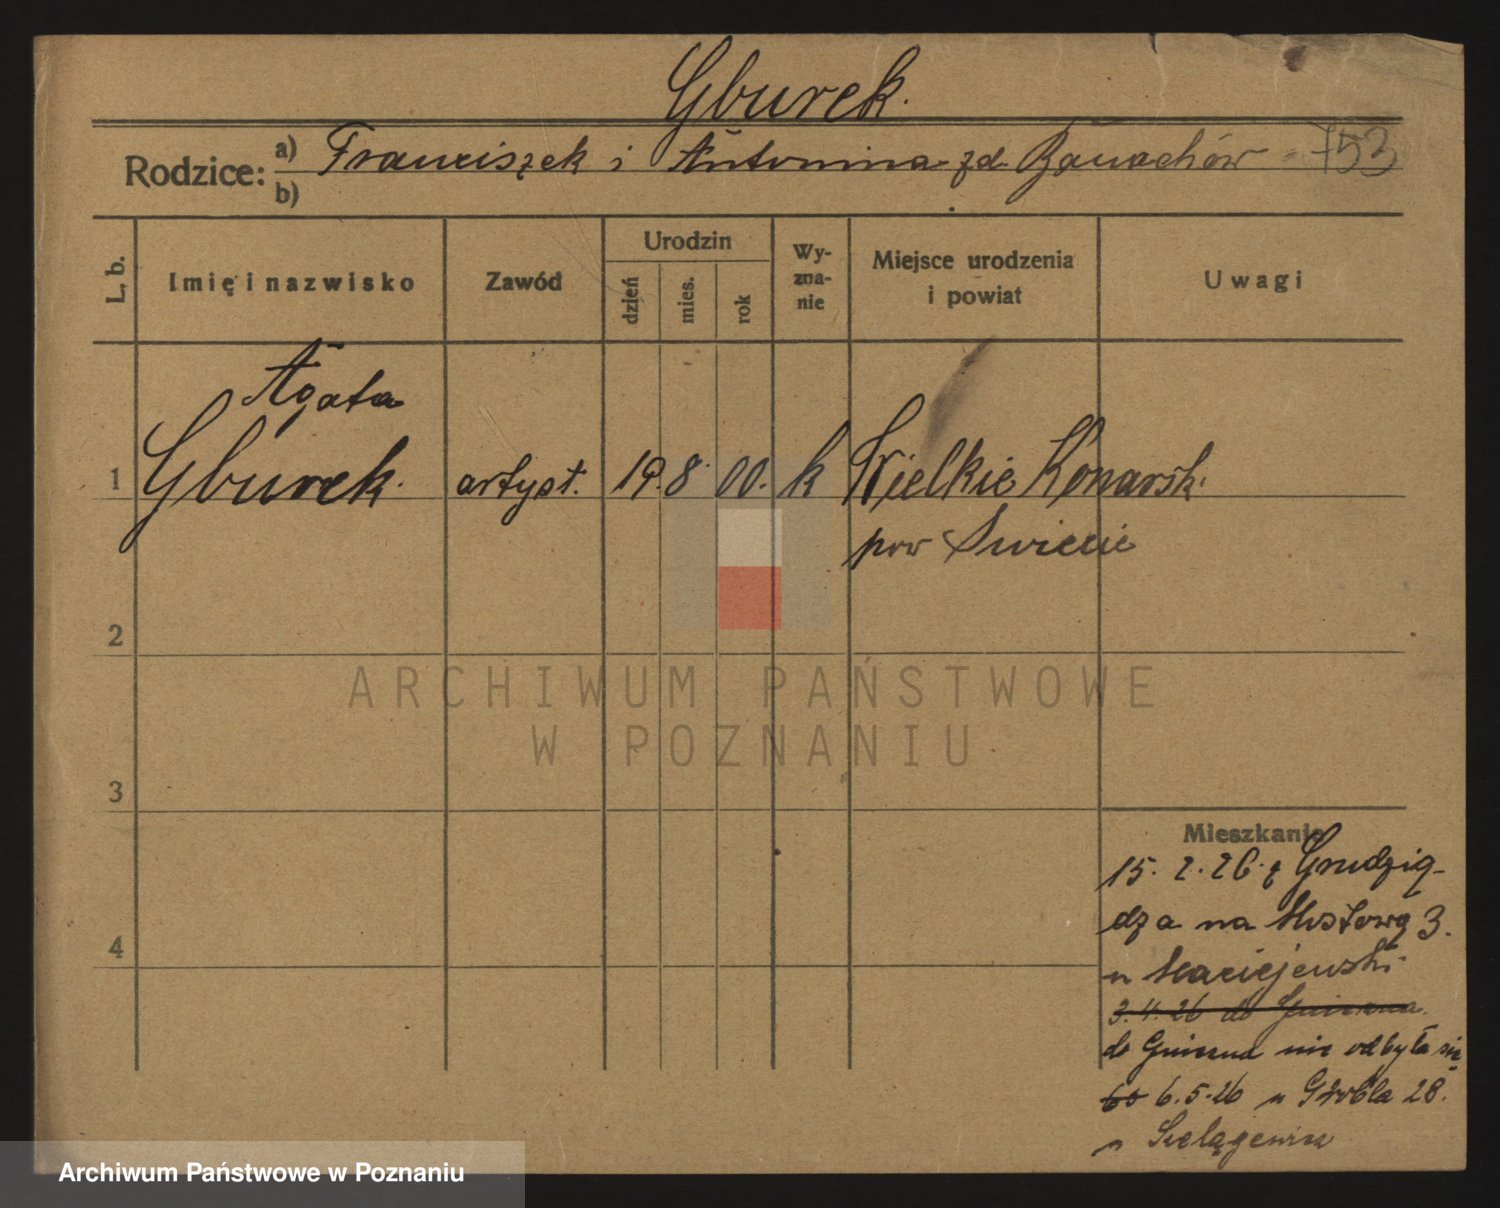 Gburek.
Rodzice: a) b) Franciszek i Antonina zd. Banachów 753
L. b. Imię i nazwisko Zawód Urodzin dzień mies. rok Wyznanie Miejsce urodzenia i powiat Uwagi
Agata
1 Gburek. artyst. 19. 8. 00. k Wielkie Konarsk.
pow Swiecie
2
ARCHIWUM PAŃSTWOWE
W POZNANIU
3
Mieszkanie
15. 2. 26. z Grudzią-
dza na Mostową 3.
u Maciejewski
4
3.4.26 do Gniezna
do Gniezna nie odbyła się
6.5.26 u Grobla 28.
u Szelągiewicz
Archiwum Państwowe w Poznaniu